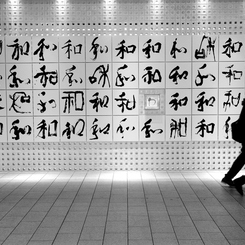 和和和和和和和和和
和和和和和和和和和
和和和和和和和和
和和和和和和和和和